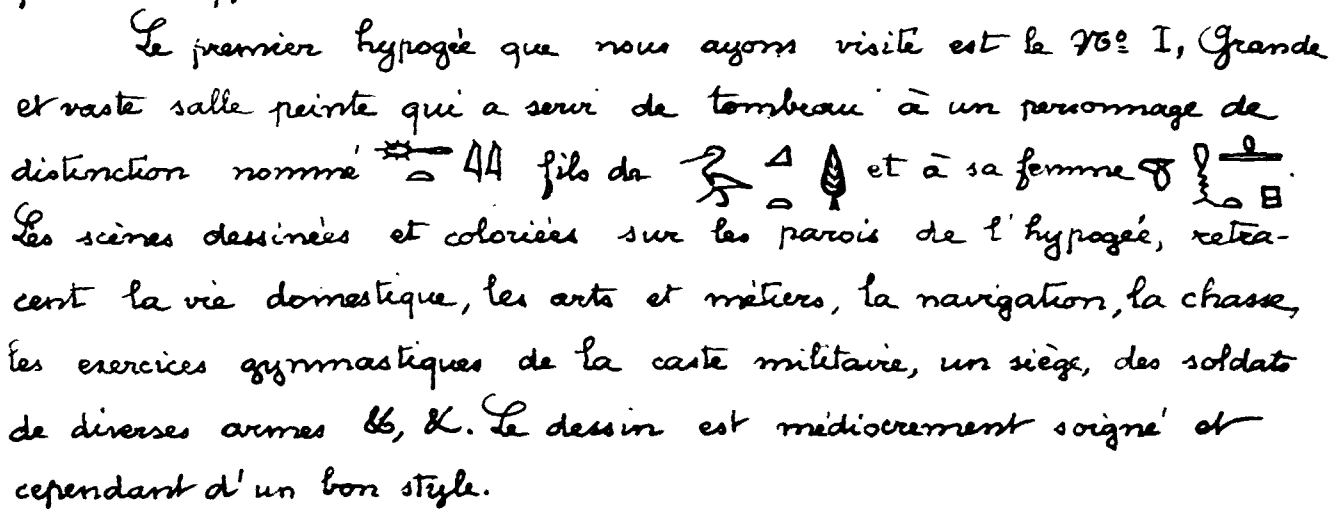 Le premier hypogée que nous ayons visité est le No. I, Grande
et vaste salle peinte qui a servi de tombeau à un personnage de
distinction nommé fils de et à sa femme
Les scènes dessinées et coloriées sur les parois de l'hypogée, retra-
cent la vie domestique, les arts et métiers, la navigation, la chasse,
les exercices gymnastiques de la caste militaire, un siège, des soldats
de diverses armes &, &. Le dessin est médiocrement soigné et
cependant d'un bon style.